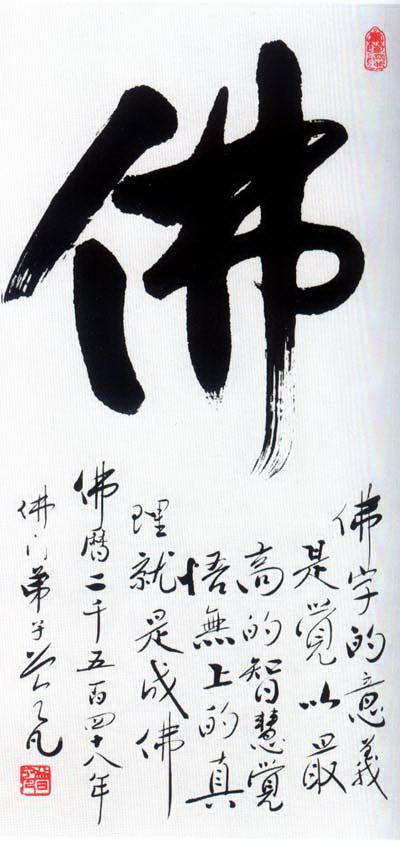 佛
佛字的意義
是覺以最
高的智慧覺
悟無上的真
理就是成佛
佛曆二千五百四十八年
佛门弟子